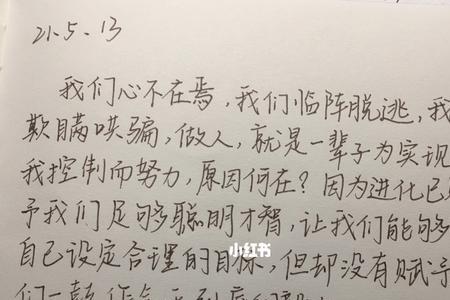 21.5.13
我们心不在焉，我们临阵脱逃，我
欺瞒哄骗，做人，就是一辈子为实现
我控制而努力，原因何在？因为进化已
予我们足够聪明才智，让我们能够
小红书
自己设定合理的目标，但却没有赋予